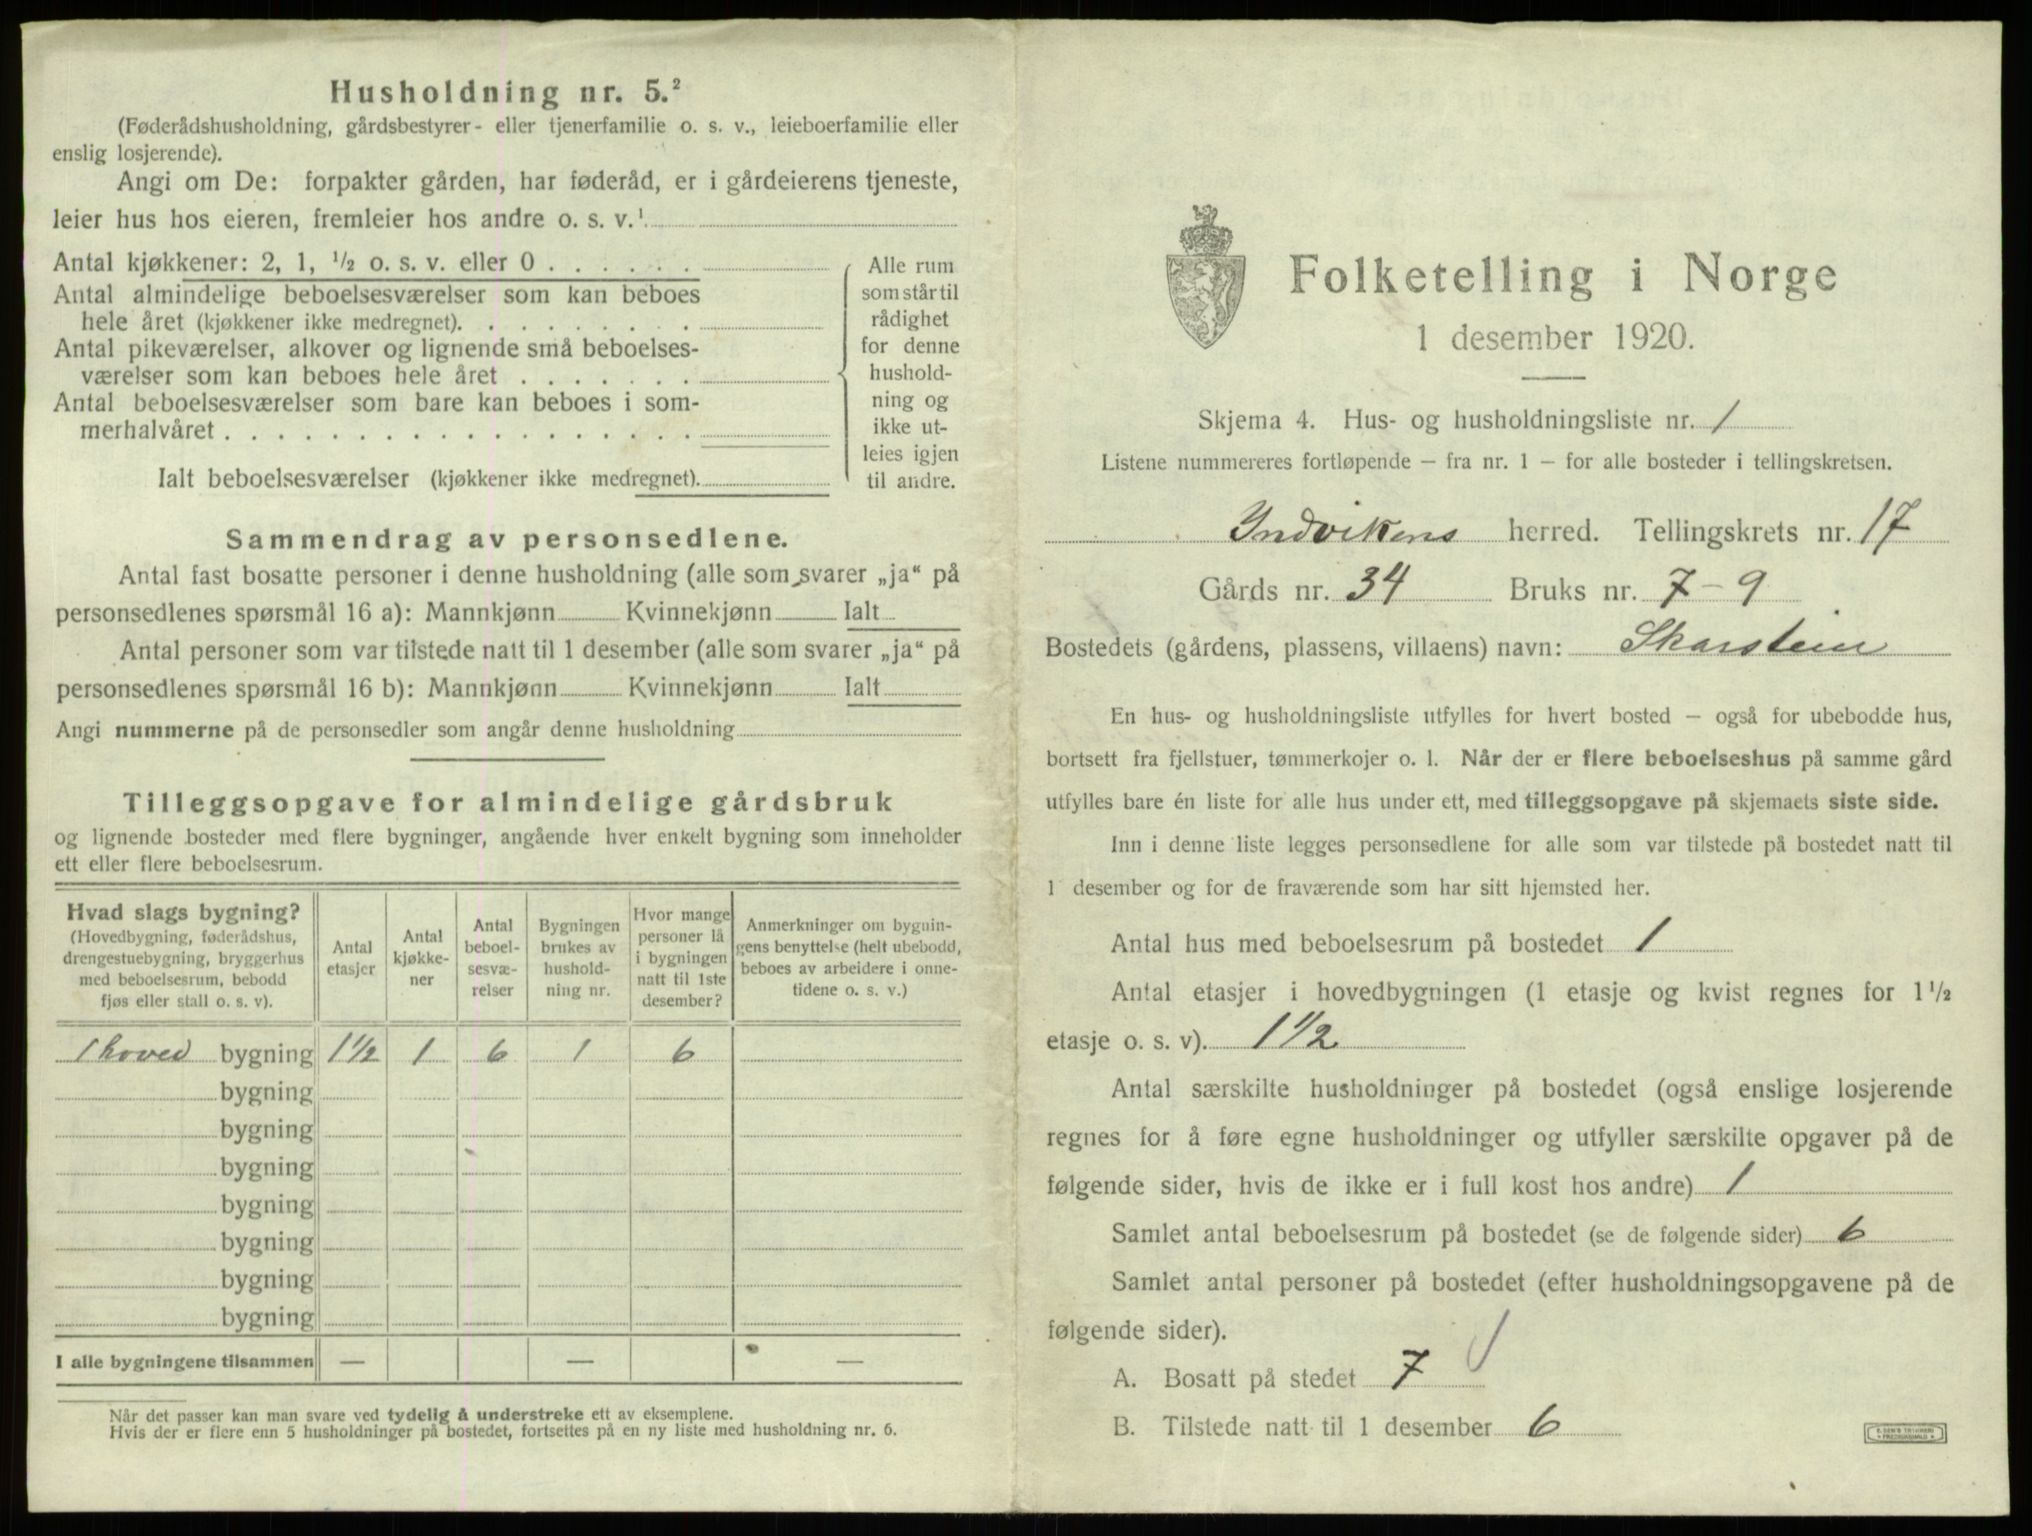 Husholdning nr. 5.²
(Føderådshusholdning, gårdsbestyrer- eller tjenerfamilie o. s. v., leieboerfamilie eller
enslig losjerende).
Angi om De: forpakter gården, har føderåd, er i gårdeierens tjeneste,
leier hus hos eieren, fremleier hos andre o. s. v.¹
Antal kjøkkener: 2, 1, ½ o. s. v. eller 0 . . . . . .
Antal almindelige beboelsesværelser som kan beboes
hele året (kjøkkener ikke medregnet). . . . . . . . .
Antal pikeværelser, alkover og lignende små beboelses-
værelser som kan beboes hele året . . . . . . .
Antal beboelsesværelser som bare kan beboes i som-
merhalvåret . . . . . . . . . . . . . . . . . .
Ialt beboelsesværelser (kjøkkener ikke medregnet).
Alle rum
som står til
rådighet
for denne
hushold-
ning og
ikke ut-
leies igjen
til andre.
Sammendrag av personsedlene.
Antal fast bosatte personer i denne husholdning (alle som svarer „ja“ på
personsedlenes spørsmål 16 a): Mannkjønn Kvinnekjønn Ialt
Antal personer som var tilstede natt til 1 desember (alle som svarer „ja“ på
personsedlenes spørsmål 16 b): Mannkjønn Kvinnekjønn Ialt
Angi nummerne på de personsedler som angår denne husholdning
Tilleggsopgave for almindelige gårdsbruk
og lignende bosteder med flere bygninger, angående hver enkelt bygning som inneholder
ett eller flere beboelsesrum.
Hvad slags bygning?
(Hovedbygning, føderådshus,
drengestuebygning, bryggerhus
med beboelsesrum, bebodd
fjøs eller stall o. s. v).
Antal
etasjer
Antal
kjøkke-
ner
Antal
beboel-
sesvæ-
relser
Bygningen
brukes av
hushold-
ning nr.
Hvor mange
personer lå
i bygningen
natt til 1ste
desember?
Anmerkninger om bygnin-
gens benyttelse (helt ubebodd,
beboes av arbeidere i onne-
tidene o. s. v.)
1 hoved bygning 1½ 1 6 1 6
bygning
bygning
bygning
bygning
bygning
bygning
bygning
I alle bygningene tilsammen — — —
Når det passer kan man svare ved tydelig å understreke ett av eksemplene.
Hvis der er flere enn 5 husholdninger på bostedet, fortsettes på en ny liste med husholdning nr. 6.
Folketelling i Norge
1 desember 1920.
Skjema 4. Hus- og husholdningsliste nr. 1
Listene nummereres fortløpende — fra nr. 1 — for alle bosteder i tellingskretsen.
Indvikens herred. Tellingskrets nr. 17
Gårds nr. 34 Bruks nr. 7 - 9
Bostedets (gårdens, plassens, villaens) navn: Skarstein
En hus- og husholdningsliste utfylles for hvert bosted — også for ubebodde hus,
bortsett fra fjellstuer, tømmerkojer o. l. Når der er flere beboelseshus på samme gård
utfylles bare én liste for alle hus under ett, med tilleggsopgave på skjemaets siste side.
Inn i denne liste legges personsedlene for alle som var tilstede på bostedet natt til
1 desember og for de fraværende som har sitt hjemsted her.
Antal hus med beboelsesrum på bostedet 1
Antal etasjer i hovedbygningen (1 etasje og kvist regnes for 1½
etasje o. s. v). 1½
Antal særskilte husholdninger på bostedet (også enslige losjerende
regnes for å føre egne husholdninger og utfyller særskilte opgaver på de
følgende sider, hvis de ikke er i full kost hos andre) 1
Samlet antal beboelsesrum på bostedet (se de følgende sider) 6
Samlet antal personer på bostedet (efter husholdningsopgavene på de
følgende sider).
A. Bosatt på stedet 7
B. Tilstede natt til 1 desember 6